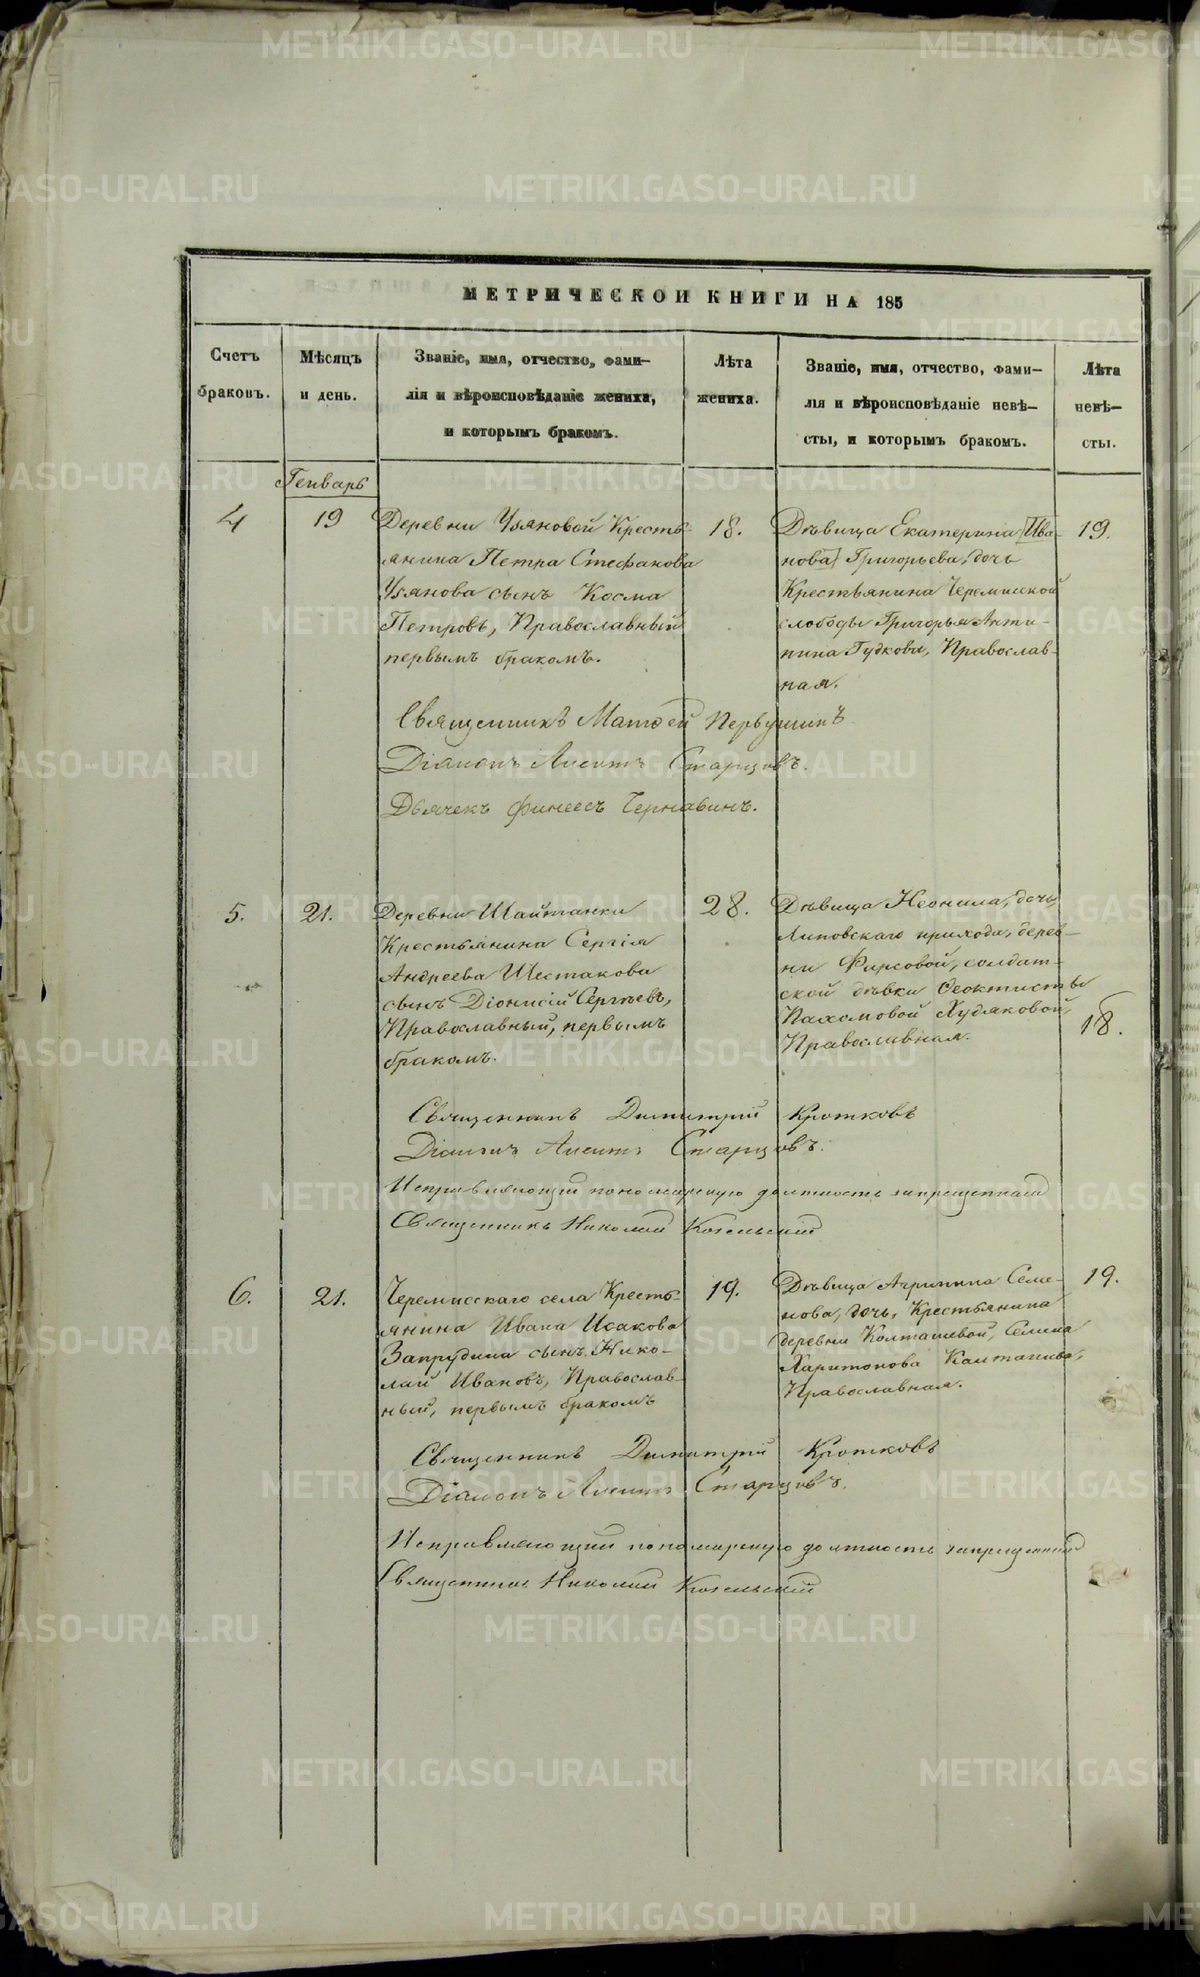 МЕТРИЧЕСКОЙ КНИГИ НА 185
Счетъ браковъ.
Мѣсяцъ и день.
Званіе, имя, отчество, фами-
лія и вѣроисповѣданіе жениха,
и которымъ бракомъ.
Лѣта жениха.
Званіе, имя, отчество, фами-
лія и вѣроисповѣданіе невѣ-
сты, и которымъ бракомъ.
Лѣта невѣ-
сты.
Генварь
4
19
Деревни Ульяновой Кресть-
янина Петра Стефанова
Ульянова сынъ Косма
Петровъ, Православный
первымъ бракомъ.
18.
Дѣвица Екатерина [Ива-
нова] Григорьева, дочь
Крестьянина Черемисской
слободы Григорья Анти-
пина Гудкова, Православ-
ная.
19.
Священникъ Матѳей Первушинъ
Діаконъ Старцовъ.
Дьячекъ Финеесъ Чернавинъ.
5.
21.
Деревни Шайтанки
Крестьянина Сергія
Андреева Шестакова
сынъ Діонисій Сергѣевъ,
Православный, первымъ
бракомъ.
28.
Дѣвица Неонила, дочь
Липовскаго прихода, дерев-
ни Фирсовой, солдат-
ской дѣвки Ѳеоктисты
Пахомовой Худяковой,
Православная.
18.
Священникъ Димитрій Кротковъ
Діаконъ Старцовъ.
Исправляющій пономарскую должность запрещенный
Священникъ Николай
6.
21.
Черемисскаго села Кресть-
янина Ивана Исакова
Запрудина сынъ Нико-
лай Ивановъ, Православ-
ный, первымъ бракомъ
19.
Дѣвица Агрипина Семе-
нова, дочь, Крестьянина
деревни Колташевой, Семена
Харитонова Колташева,
Православная.
19.
Священникъ Димитрій Кротковъ
Діаконъ Старцовъ.
Исправляющій пономарскую должность запрещенный
Священникъ Николай
METRIKI.GASO-URAL.RU